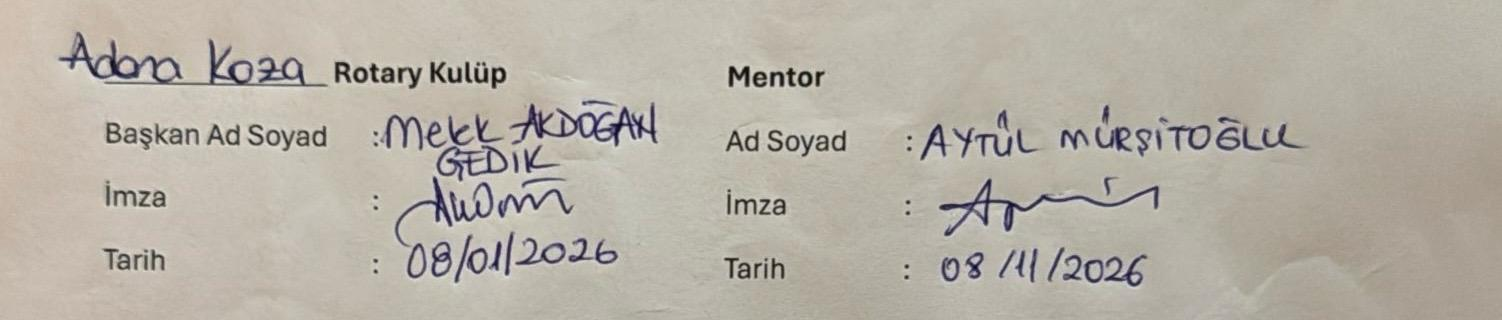 Adana Koza Rotary Kulüp
Başkan Ad Soyad : Melek AKDOĞAN
GEDİK
İmza :
Tarih : 08/01/2026
Mentor
Ad Soyad : AYTÜL MÜRŞİTOĞLU
İmza :
Tarih : 08/11/2026